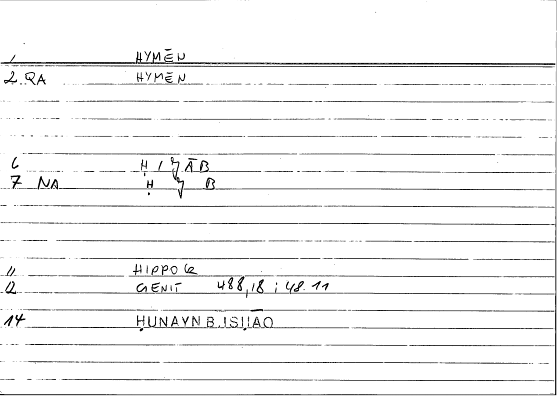 1 HYMĒN
2 QA HYMĒN
6 Ḥ I Ǧ Ā B
7 NA Ḥ Ǧ B
11 HIPPOG
12 GENIT 488,18 ; 48.11
14 ḤUNAYN B.ISḤĀQ